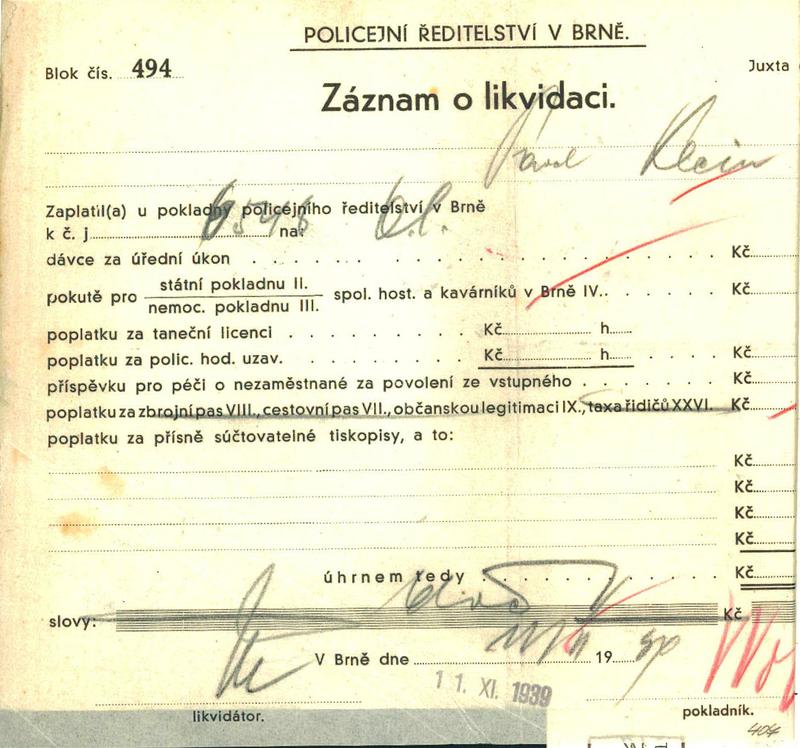 POLICEJNÍ ŘEDITELSTVÍ V BRNĚ.
Blok čís. 494
Juxta
Záznam o likvidaci.
Pavel Klein
Zaplatil(a) u pokladny policejního ředitelství v Brně
k č. j. na:
dávce za úřední úkon Kč
pokutě pro státní pokladnu II.
nemoc. pokladnu III. spol. host. a kavárníků v Brně IV. Kč
poplatku za taneční licenci Kč h
poplatku za polic. hod. uzav. Kč h Kč
příspěvku pro péči o nezaměstnané za povolení ze vstupného Kč
poplatku za zbrojní pas VIII., cestovní pas VII., občanskou legitimaci IX., taxa řidičů XXVI. Kč
poplatku za přísně súčtovatelné tiskopisy, a to:
Kč
Kč
Kč
Kč
úhrnem tedy Kč
slovy: Kč
V Brně dne 19
11. XI. 1939
likvidátor.
pokladník.
404